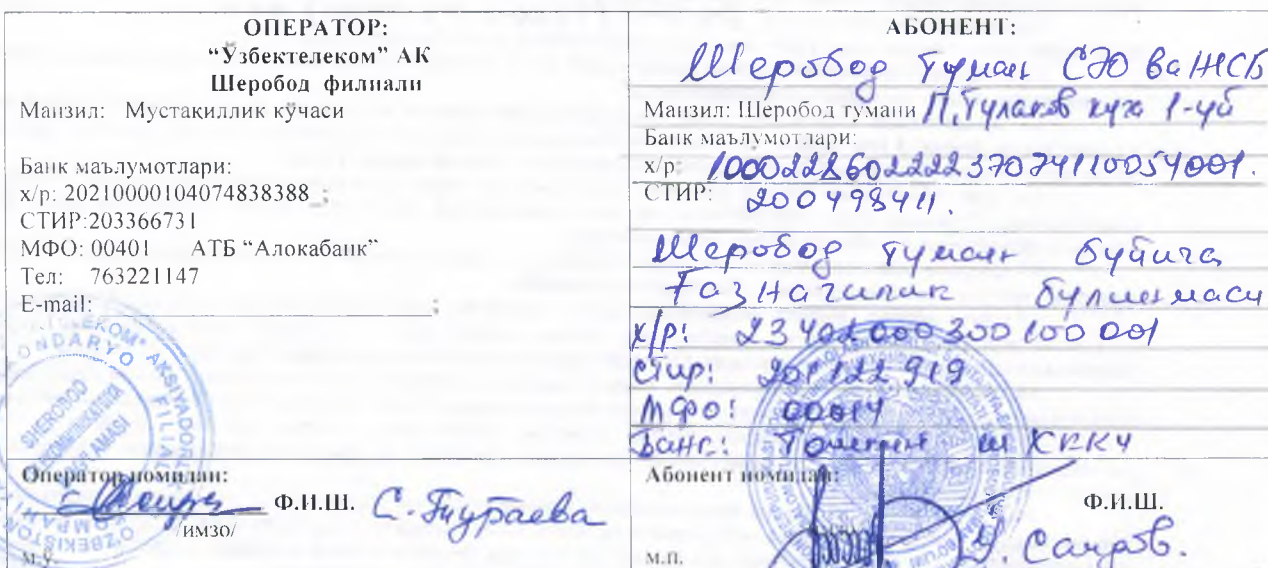 ОПЕРАТОР:
“Ўзбектелеком” АК
Шеробод филиали
Манзил: Мустакиллик кўчаси
Банк маълумотлари:
х/р: 20210000104074838388 ;
СТИР:203366731
МФО: 00401 АТБ “Алокабанк”
Тел: 763221147
E-mail: ;
Оператор номидан:
Ф.И.Ш. С. Тураева
/имзо/
М.Ў.
АБОНЕНТ:
Шеробод туман СЭО ва ЖСБ
Манзил: Шеробод тумани П.Тулаков куча 1-уй
Банк маълумотлари:
х/р: 100022860222237074110054001.
СТИР: 200498411.
Шеробод туман буйича
Газначилик булинмаси
х/р: 23402000300100001
Стир: 201122919
МФО: 00014
Банк: Тошкент ш ХККМ
Абонент номидан:
Ф.И.Ш.
Саидов.
М.П.